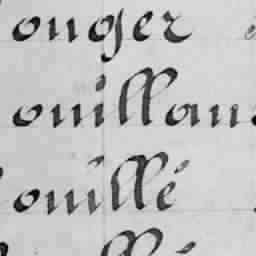 onger
ouillans
ouillé